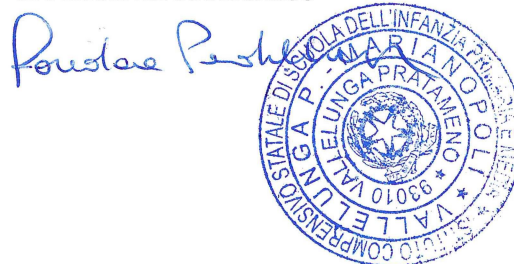 ISTITUTO COMPRENSIVO STATALE DI SCUOLA DELL'INFANZIA PRIMARIA E MEDIA *
VALLELUNGA P. - MARIANOPOLI *
93010 VALLELUNGA PRATAMENO *